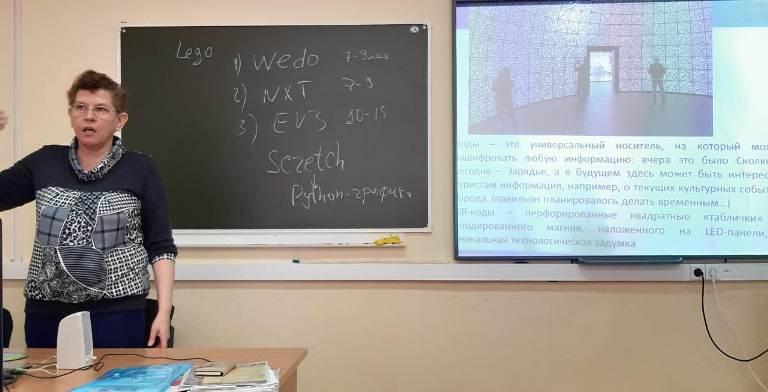 Lego
1) Wedo 7-9лет
2) NXT 7-9
3) EV3 10-15
Scretch
Python-графика
коды – это универсальный носитель, на который мо
ашифровать любую информацию: вчера это было Сколк
егодня – Зарядье, а в будущем здесь может быть интерес
уристам информация, например, о текущих культурных событ
орода. (павильон планировалось делать временным...)
QR-коды – перфорированные квадратные «таблички»
нодированного магния, наложенного на LED-панели,
никальная технологическая задумка